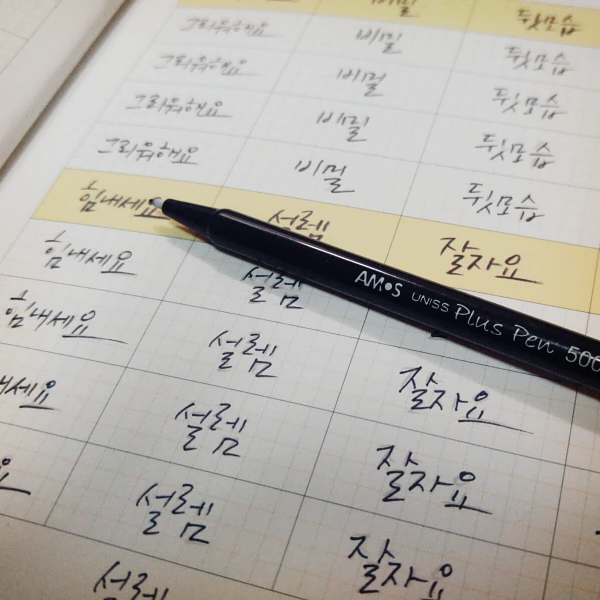 비밀 뒷모습
그리워해요 비밀 뒷모습
그리워해요 비밀 뒷모습
그리워해요 비밀 뒷모습
그리워해요 비밀 뒷모습
힘내세요 설렘 잘자요
힘내세요 설렘
힘내세요 설렘 잘자요
내세요 설렘 잘자요
요 설렘 잘자요
설렘
AMOS UNISS Plus Pen 500